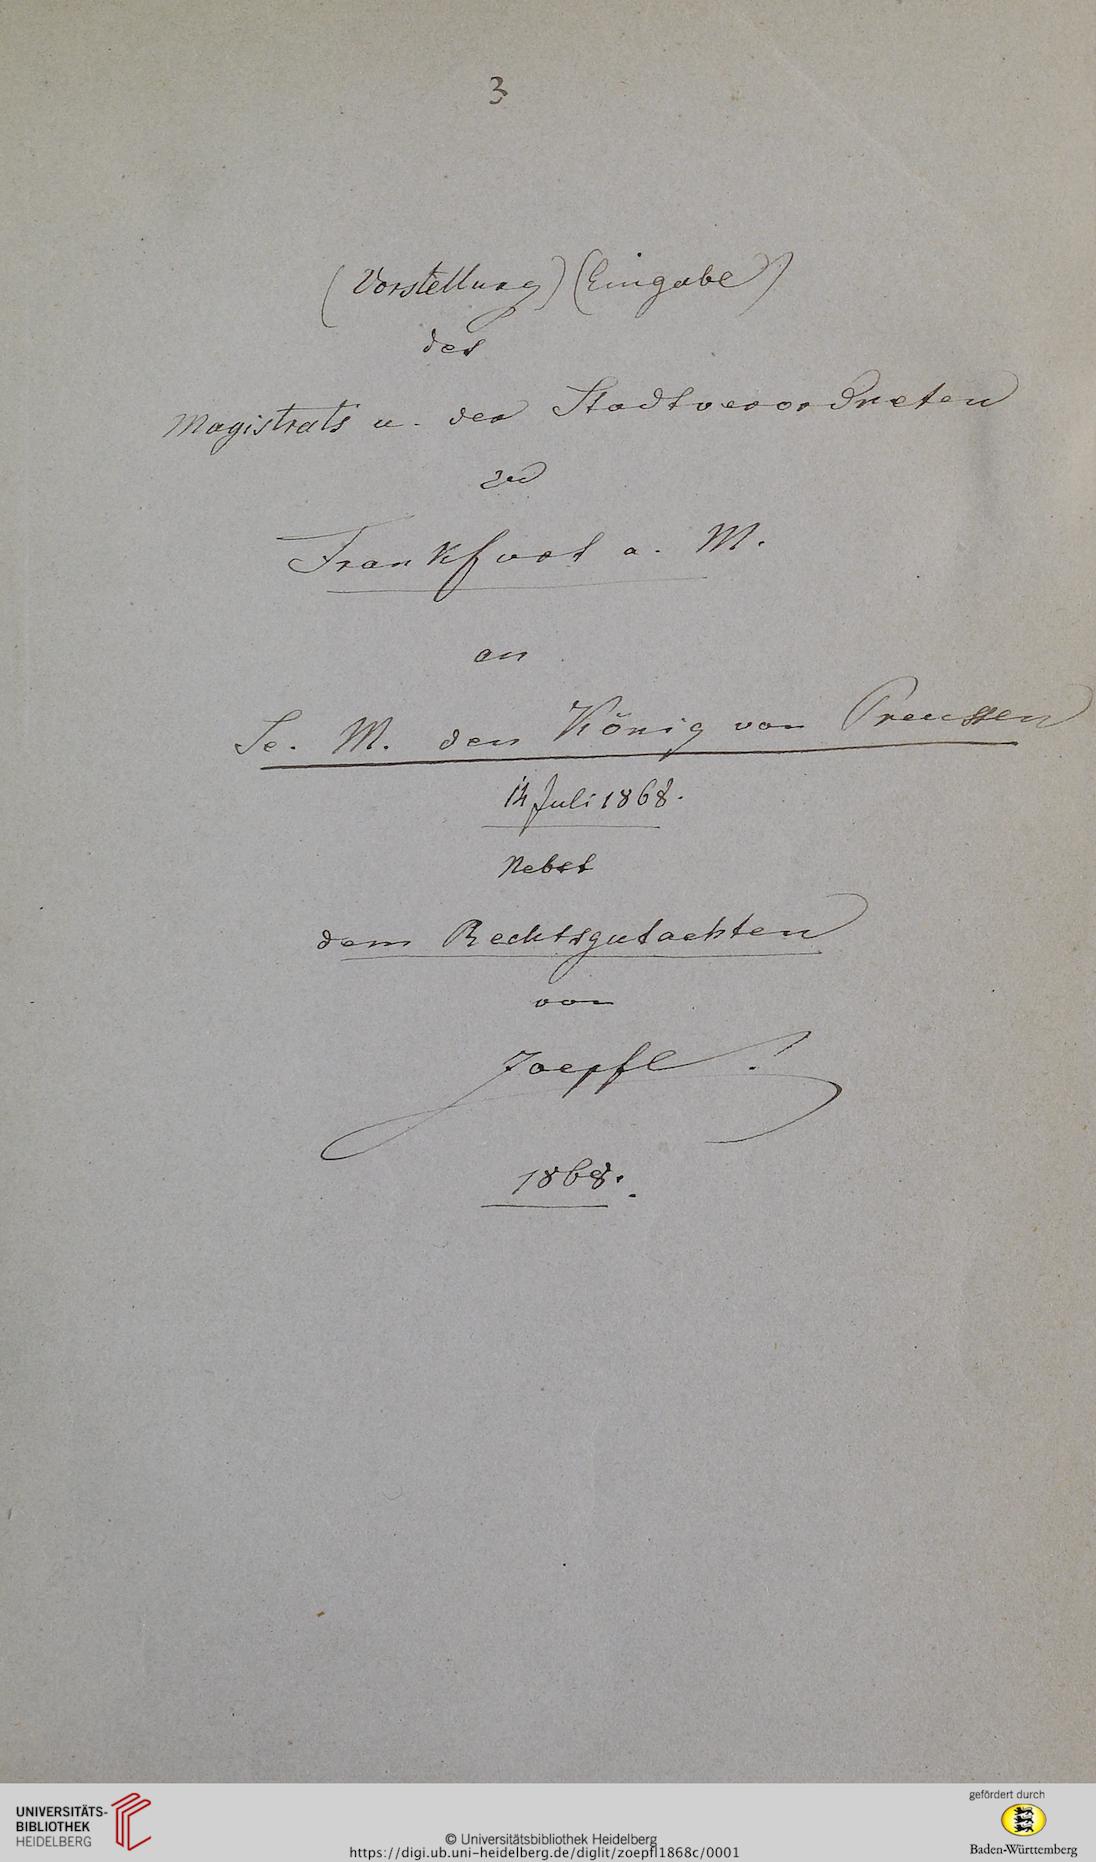 3
(Vorstellung) (Eingabe)
des
Magistrats u. der Stadtverordneten
zu
Frankfurt a. M.
an
Se. M. den König von Preussen
14 Juli 1868.
Nebst
dem Rechtsgutachten
von
Zoepfl.
1868.
UNIVERSITÄTS-
BIBLIOTHEK
HEIDELBERG
© Universitätsbibliothek Heidelberg
https://digi.ub.uni-heidelberg.de/diglit/zoepfl1868c/0001
gefördert durch
Baden-Württemberg